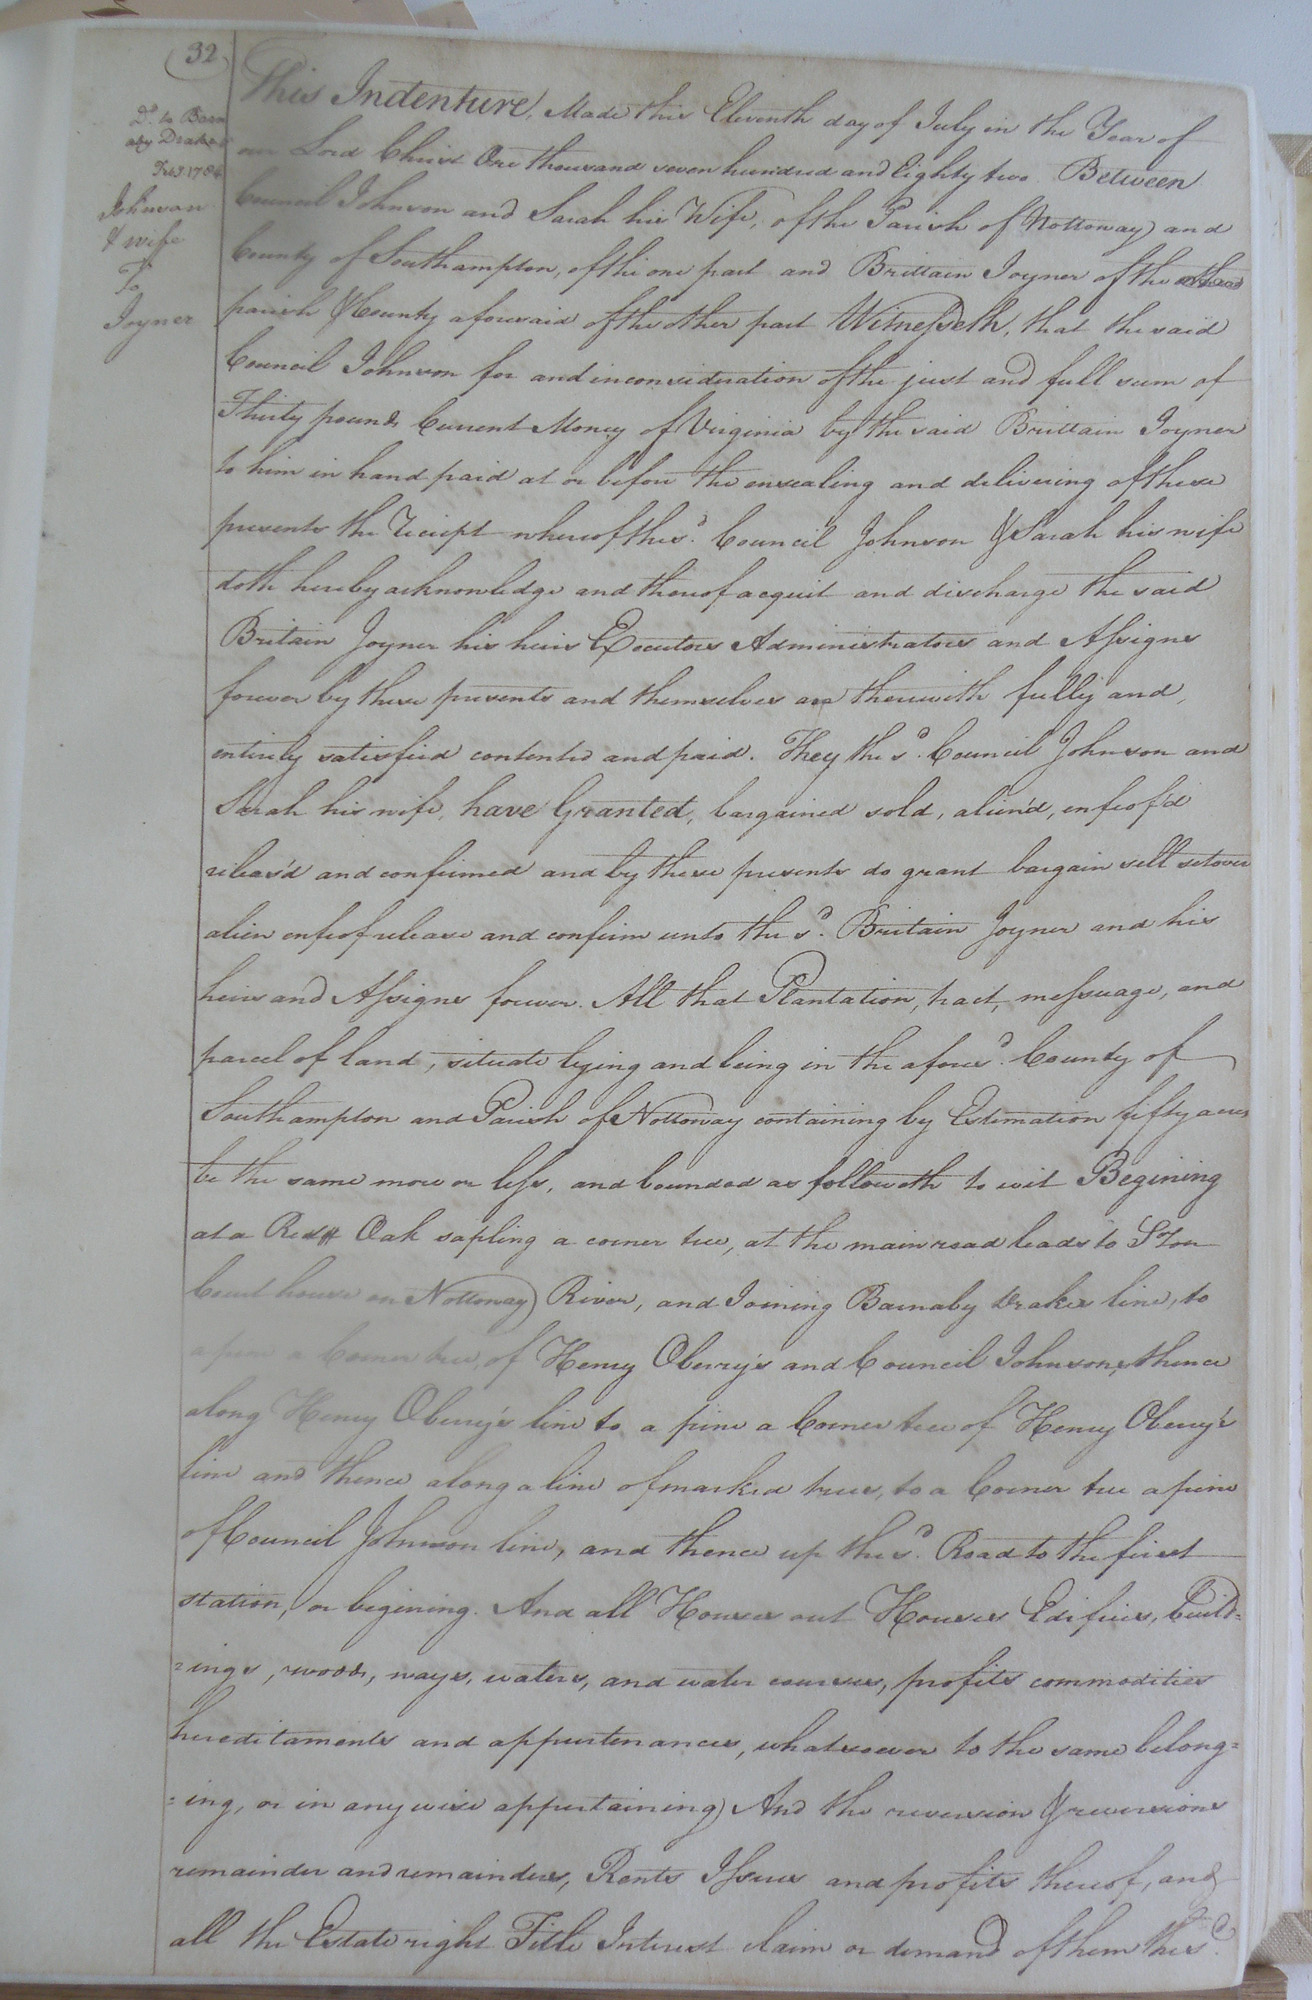 32
Dd. to Barn
aby Drake
Feb 1784
Johnson
& wife
To
Joyner
This Indenture, Made this Eleventh day of July in the Year of
our Lord Christ One thousand seven hundred and Eighty two Between
Council Johnson and Sarah his Wife, of the Parish of Nottoway and
County of Southampton, of the one part and Brittain Joyner of the
parish & County aforesaid of the other part Witnesseth, that the said
Council Johnson for and in consideration of the just and full sum of
Thirty pounds Current Money of Virginia by the said Brittain Joyner
to him in hand paid at or before the ensealing and delivering of these
presents the Reciept whereof the sd. Council Johnson & Sarah his wife
doth hereby acknowledge and thereof acquit and discharge the said
Britain Joyner his heirs Executors Administrators and Assigns
forever by these presents and themselves are therewith fully and,
entirely satisfied contented and paid. They the sd. Council Johnson and
Sarah his wife, have Granted, bargained sold, alien'd, enfeof'd
releas'd and confirmed and by these presents do grant bargain sell setover
alien enfeof release and confirm unto the sd. Britain Joyner and his
heirs and Assigns forever. All that Plantation, tract, messuage, and
parcel of land, situate lying and being in the afores'd. County of
Southampton and Parish of Nottoway containing by Estimation fifty acres
be the same more or less, and bounded as followeth to wit Begining
at a Red Oak sapling a corner tree, at the main road leads to S'ton
Court house on Nottoway River, and Joining Barnaby Drakes line, to
a pine a Corner tree, of Henry Oberry's and Council Johnsons, thence
along Henry Oberry's line to a pine a Corner tree of Henry Oberry's
line and thence along a line of marked trees, to a Corner tree a pine
of Council Johnson line, and thence up the sd. Road to the first
station, or begining. And all Houses out Houses Edifices, Build=
=ings, woods, ways, waters, and water courses, profits commodities
hereditaments and appurtenances, whatsoever to the same belong=
=ing, or in any wise appertaining And the reversion & reversions
remainder and remainders, Rents Issues and profits thereof, and
all the Estate right Title Interest claim or demand of them the sd.